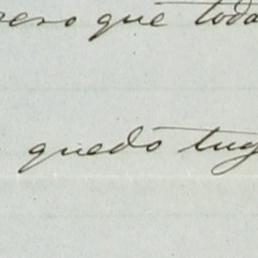 peso que toda
quedó tuy